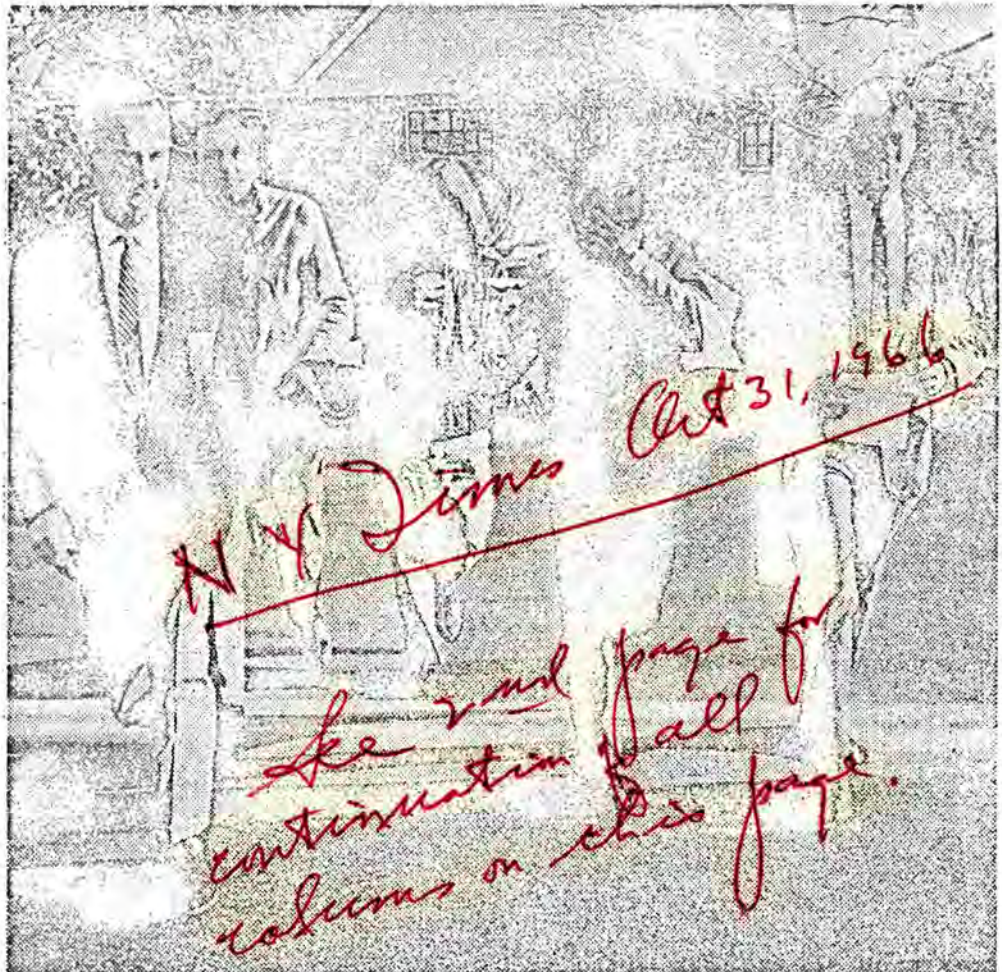 N Y Times Oct 31, 1966
See 2nd page for
continuation of all
colums on this page.